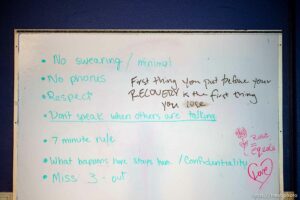 • No swearing / minimal
• No phones
First thing you put before your
RECOVERY is the first thing
you lose
• Respect
• Don't speak when others are talking
• 7 minute rule
• What happens here stays here / Confidentiality
• Miss 3 - out
equals
Love